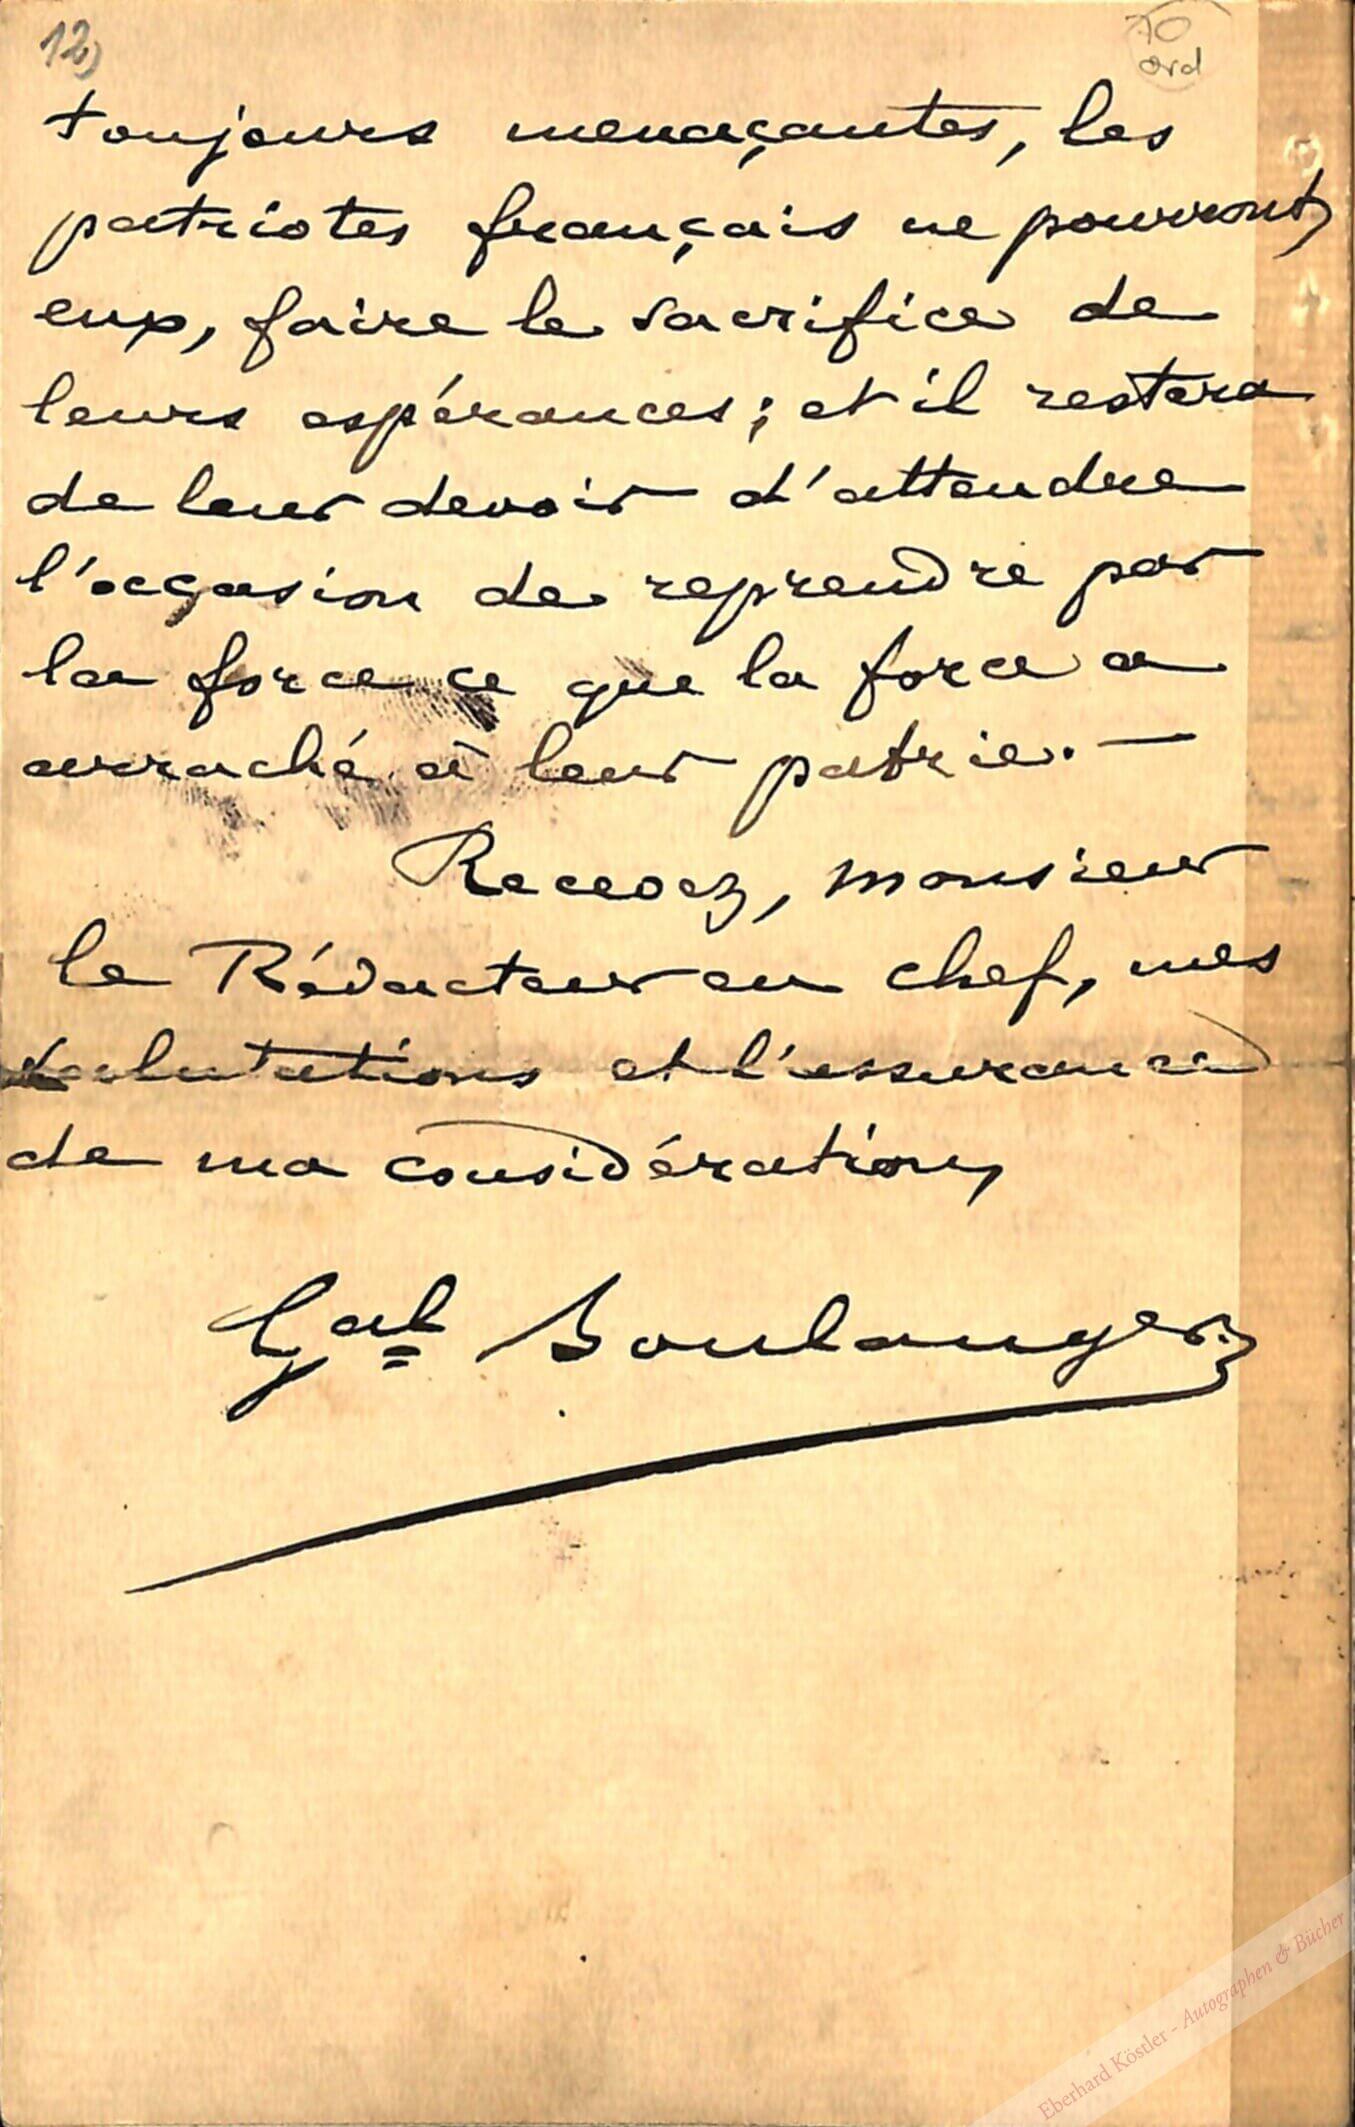 12)
70
ord
toujours menaçantes, les
patriotes français ne pourront,
eux, faire le sacrifice de
leurs espérances; et il restera
de leur devoir d'attendre
l'occasion de reprendre par
la force ce que la force a
arraché à leur patrie. —
Recevez, monsieur
le Rédacteur en chef, mes
salutations et l'assurance
de ma considération,
Gal Boulanger.
Eberhard Köstler - Autographen & Bücher